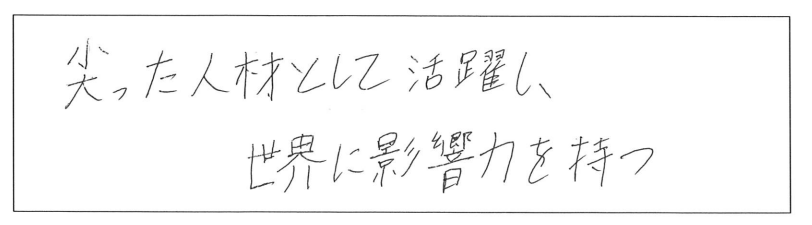 尖った人材として活躍し、
世界に影響力を持つ